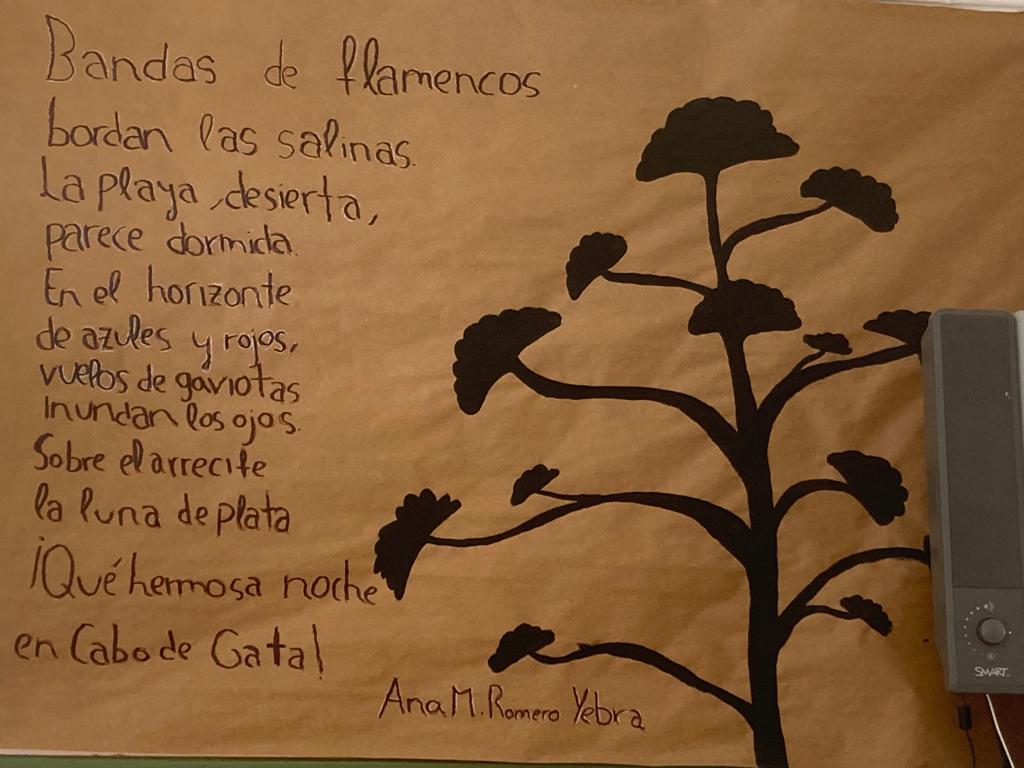 Bandas de flamencos
bordan las salinas.
La playa, desierta,
parece dormida.
En el horizonte
de azules y rojos,
vuelos de gaviotas
inundan los ojos.
Sobre el arrecife
la luna de plata
¡Qué hermosa noche
en Cabo de Gata!
Ana M. Romero Yebra
SMART